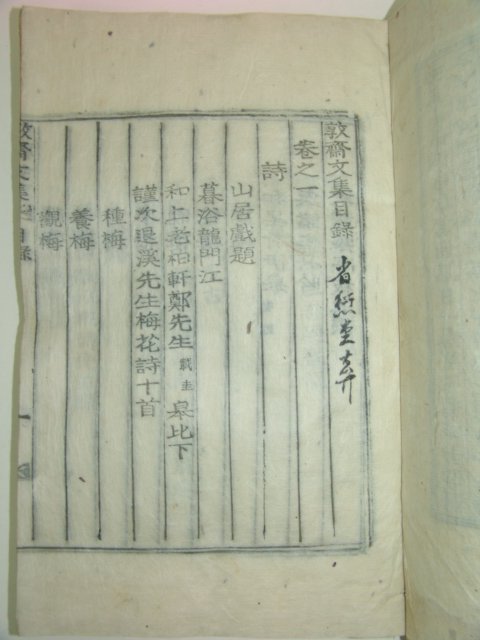 敦齋文集目錄
卷之一
詩
山居戲題
暮浴龍門江
和上老柏軒鄭先生 載圭 皐比下
謹次退溪先生梅花詩十首
種梅
養梅
觀梅
敦齋文集 目錄 一